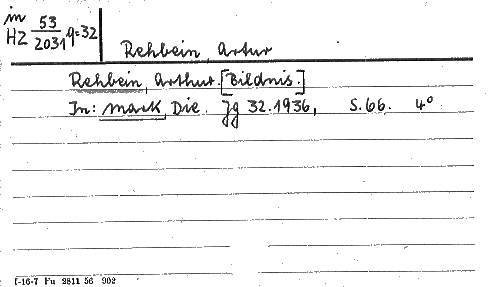 in
HZ 53/2031, q=32
Rehbein, Artur
Rehbein, Arthur. [Bildnis.]
In: Mark, Die. Jg 32.1936, S.66. 4°
I-16-7 Fu 2811 56 902